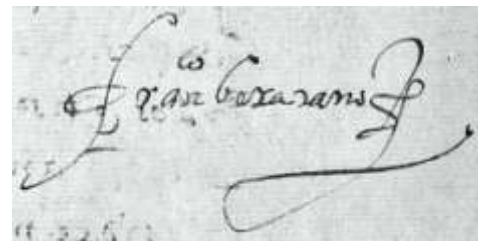 franco bexarano